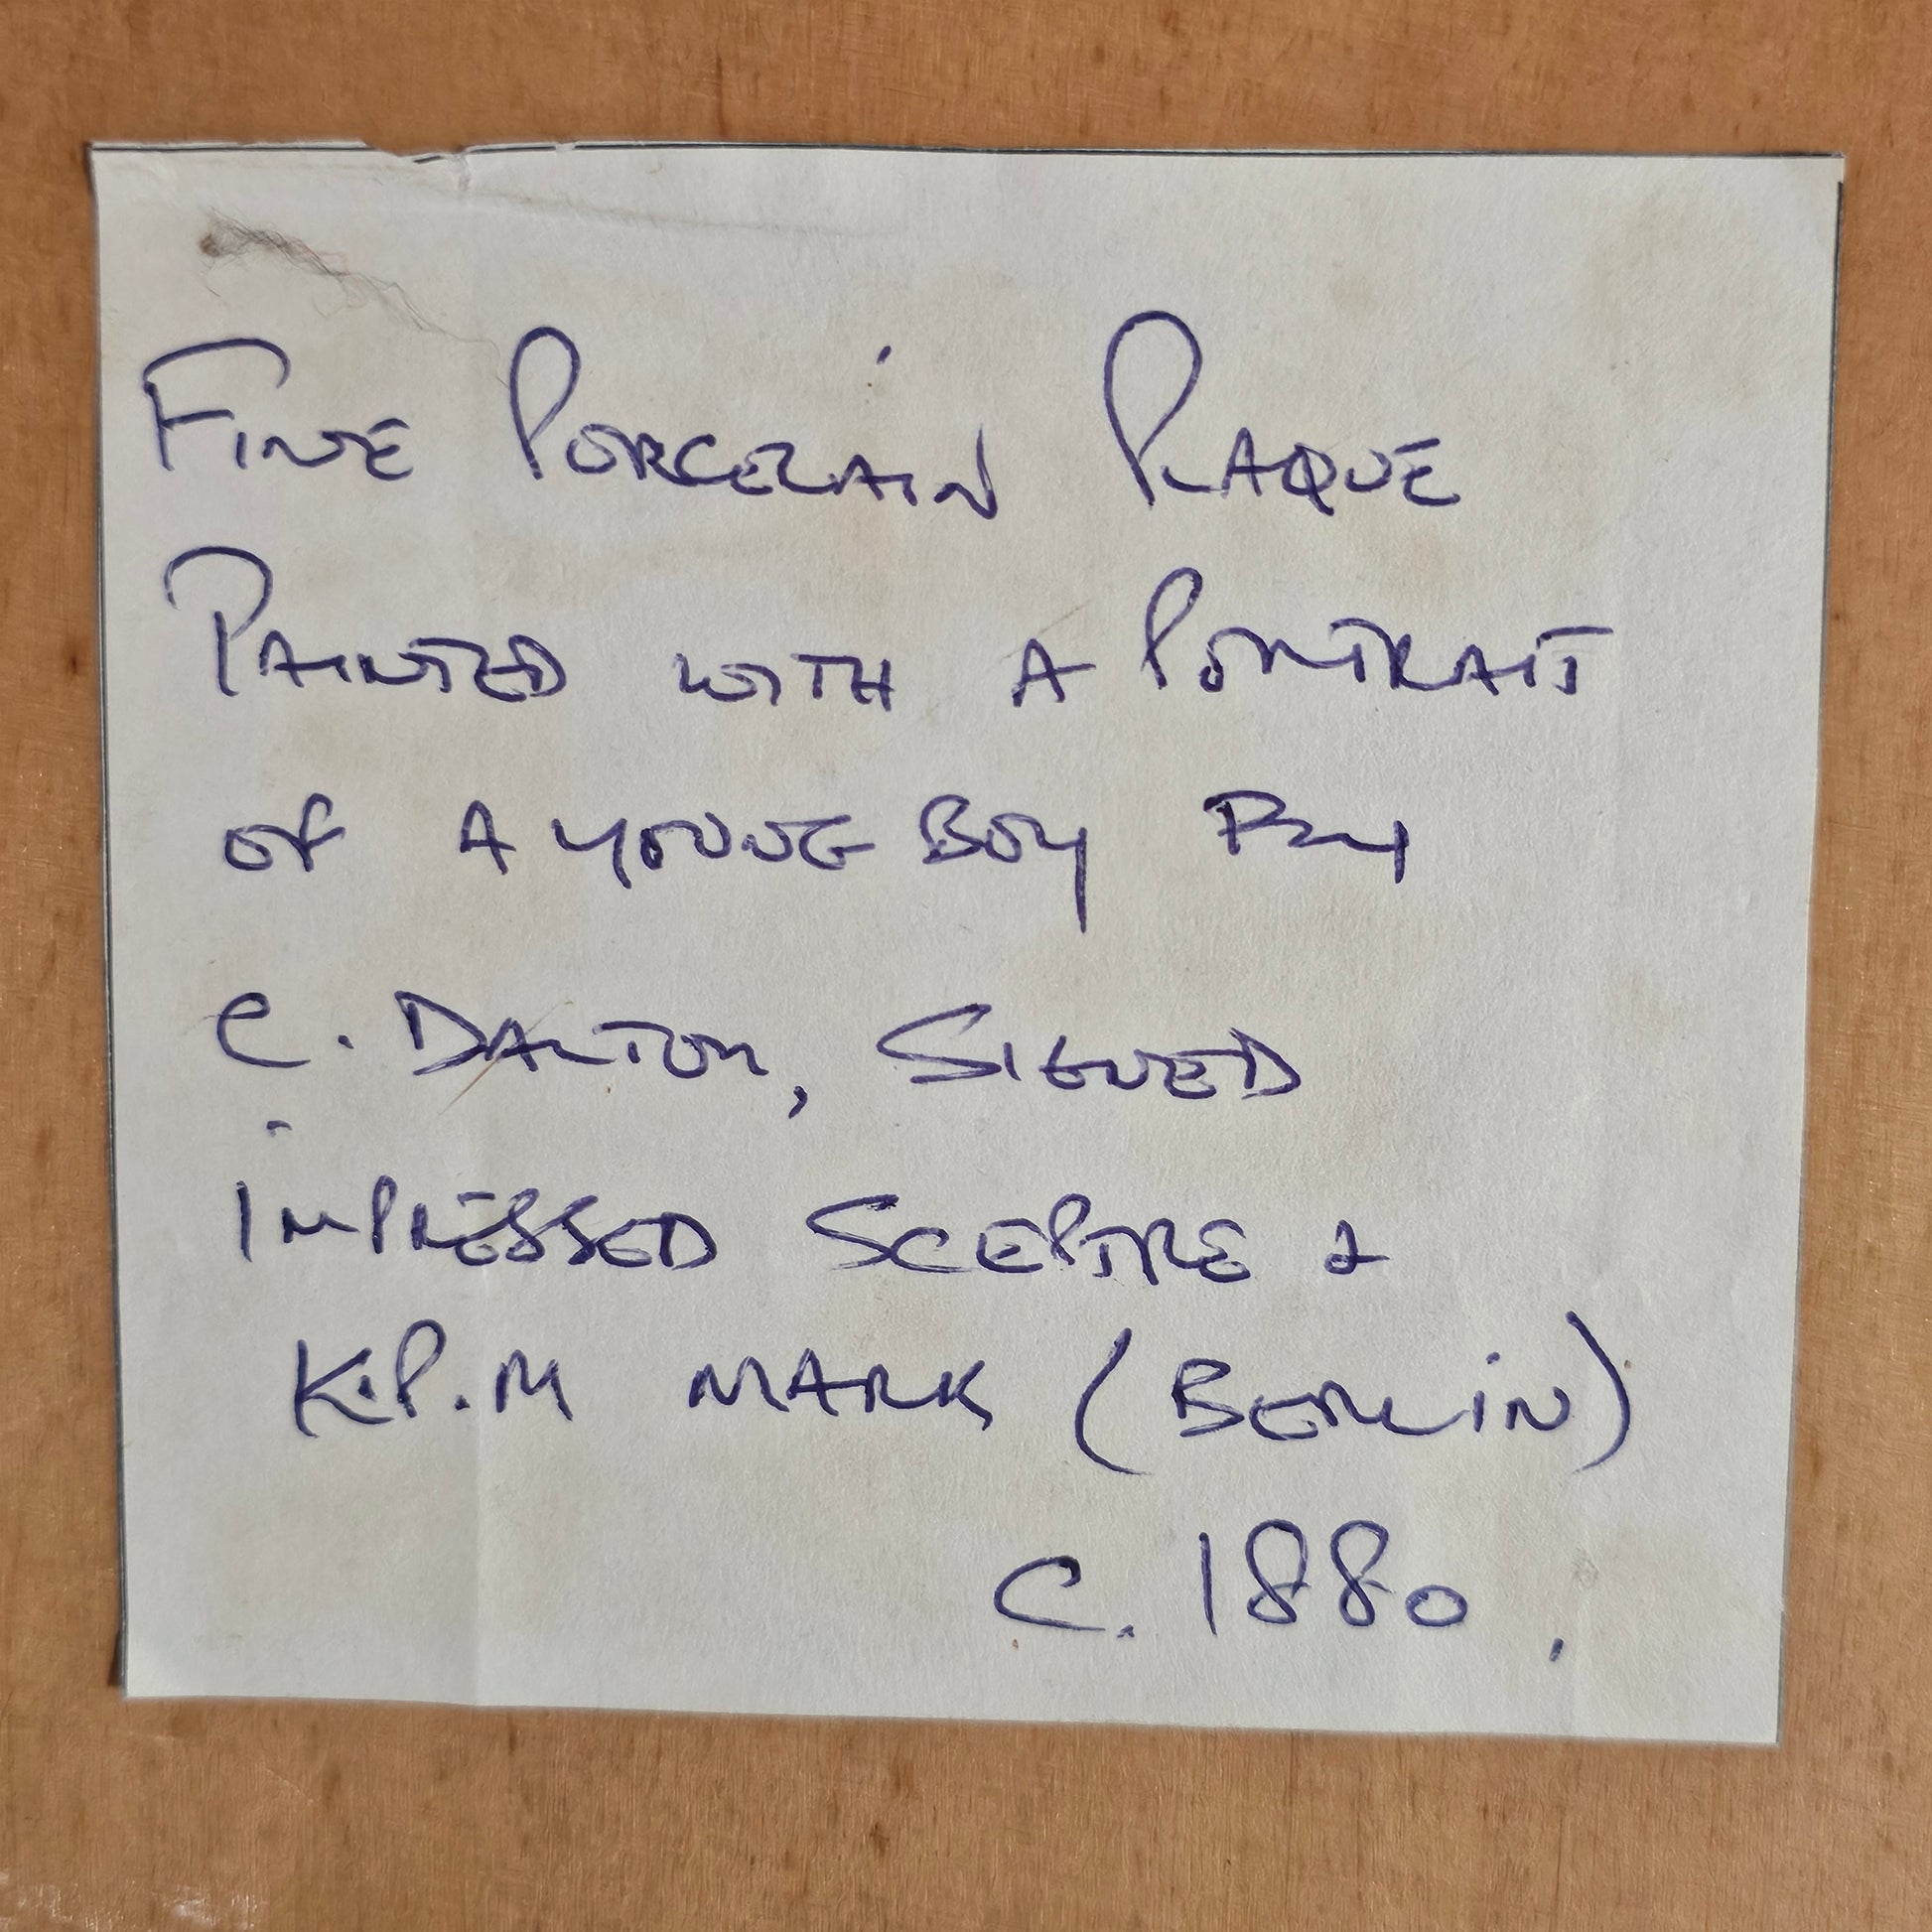 FINE PORCELAIN PLAQUE
PAINTED WITH A PORTRAIT
OF A YOUNG BOY BY
C. DALTON, SIGNED
IMPRESSED SCEPTRE &
K.P.M MARK (BERLIN)
C. 1880.